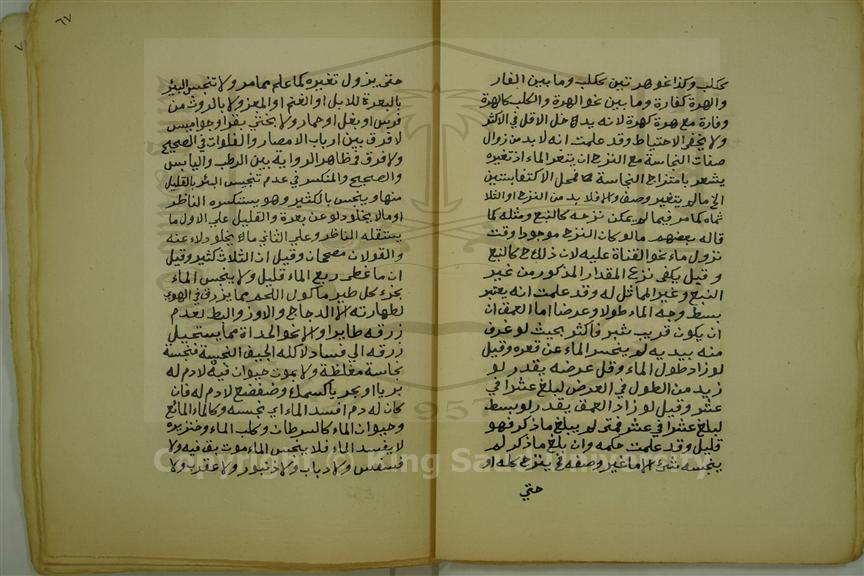 ككلب وكذا نحو هرتين ككلب وما بين الفار
والهرة كفارة وما بين نحو الهرة والكلب كالهرة
وفارة مع هرة كهرة لانه يدخل الاقل في الاكثر
ولا يخفى الاحتياط وقد علمت انه لا بد من زوال
صفات النجاسة مع النزح ان يتغير الماء اذ تغيره
يشعر بامتزاج النجاسة فمحل الاكتفا بستين
الخ ما لم يتغير وصف والا فلا بد من النزح او الثلا
ثماه كما مر فيما لم يمكن نزحه كالنبع ومثله كما
قاله بعضهم ما لو كان النزح موجودا وقت
نزول ماء نحو القناة عليه لان ذلك كالنبع
وقيل يكفي نزح المقدار المذكور من غير
النبع وغير المماثل له وقد علمت انه يعتبر
بسط وجه الماء طولا وعرضا اما العمق ان
ان يكون قريب شبر فاكثر بحيث لو غرف
منه بيديه لم ينحسر الماء عن قعره وقيل
لو زاد طول الماء وقل عرضه يقدر لو
زيد من الطول في العرض ليبلغ عشرا في
عشر وقيل لو زاد العمق يقدر لو بسط
ليبلغ عشرا في عشر فمتى لم يبلغ ما ذكر فهو
قليل وقد علمت حكمه وان بلغ ما ذكر لم
ينجسه شيء الا ما غير وصفه فينزح كله او
حتي
٦٧
حتى يزول تغيره كما علم مما مر ولا تنجس البئر
بالبعرة للابل او الغنم او المعز ولا بالروث من
فرس او بغل او حمار ولا بخثي بقر او جواميس
لا فرق بين ارباب الامصار والفلوات في الصحيح
ولا فرق في ظاهر الرواية بين الرطب واليابس
والصحيح والمنكسر في عدم تنجيس البئر بالقليل
منها وينجس بالكثير وهو يستكثره الناظر
او ما لا يخلو دلو عن بعرة والقليل علي الاول ما
يستقله الناظر وعلي الثاني ما لا يخلو دلاء عنه
والقولان مصححان وقيل ان الثلاث كثير وقيل
ان ما غطى ربع الماء قليل ولا ينجس الماء
بخرء كل طير ماكول اللحم مما يزرق في الهوى
لطهارته الا الدجاج والاوز والبط لعدم
زرقه طايرا والا نحو الحداة مما يستحيل
زرقه الي فساد لاكله الجيف النجسة فنجسة
نجاسة مغلظة ولا بموت حيوان فيه لا دم له
بريا او بحريا كسمك وضفضع لا دم له فان
كان له دم افسد الماء اي نجسه وكالماء المائع
وحيوان الماء كالسرطان وكلب الماء وخنزيره
لا يفسد الماء فلا ينجس الماء موت بق فيه ولا
فسفس ولا ذباب ولا زنبور ولا عقرب ولا
Copyright © King Saud University
1957